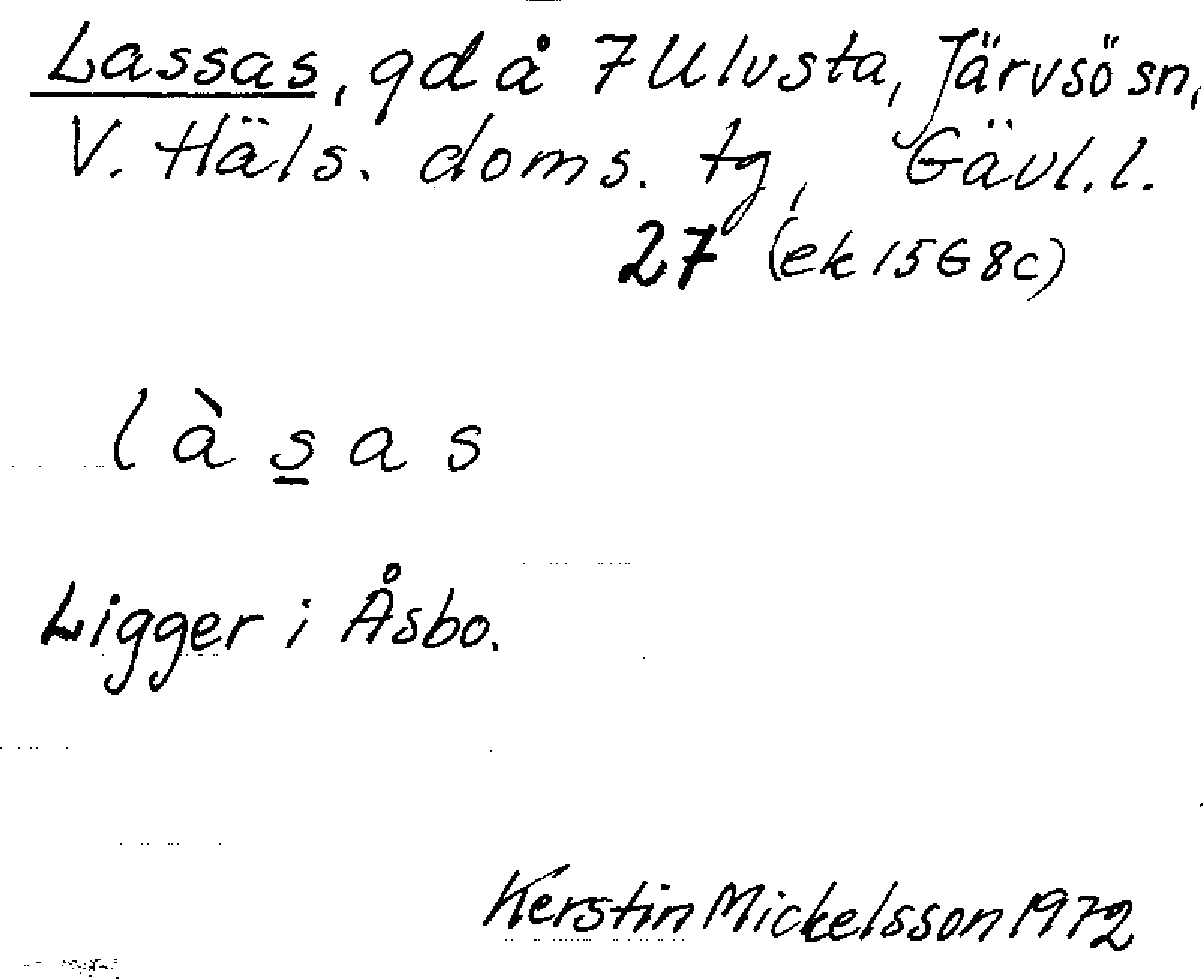 Lassas, gd å 7 Ulvsta, Järvsö sn,
V. Häls. doms. tg, Gävl. l.
27 (ek 15G8c)
làs̲as
Ligger i Åsbo.
Kerstin Mickelsson 1972